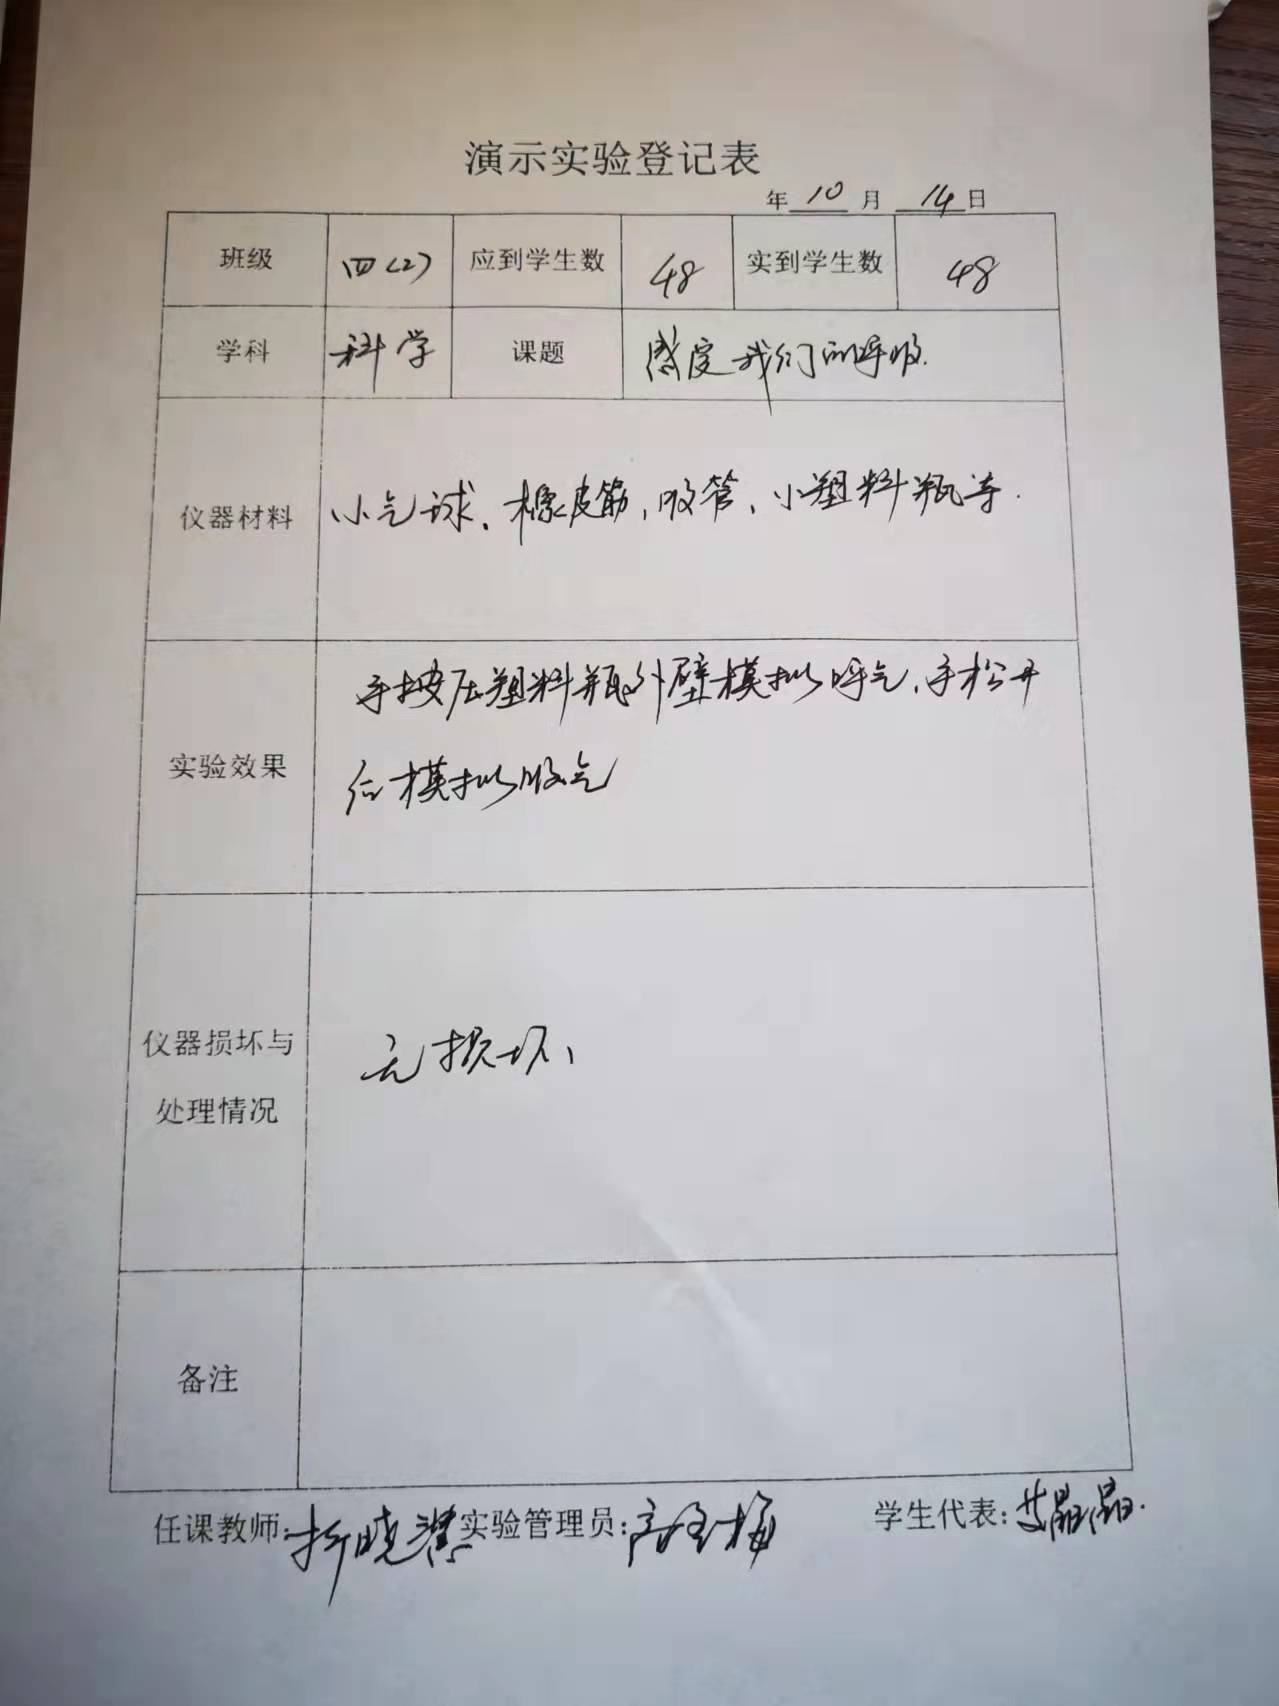 演示实验登记表
年 10 月 14 日
班级 四(2) 应到学生数 48 实到学生数 48
学科 科学 课题 感受我们的呼吸.
仪器材料 小气球、橡皮筋、吸管、小塑料瓶等.
手按压塑料瓶外壁模拟呼气,手松开
实验效果
后模拟吸气
仪器损坏与
处理情况
无损坏、
备注
任课教师: 实验管理员: 学生代表: 艾晶晶.